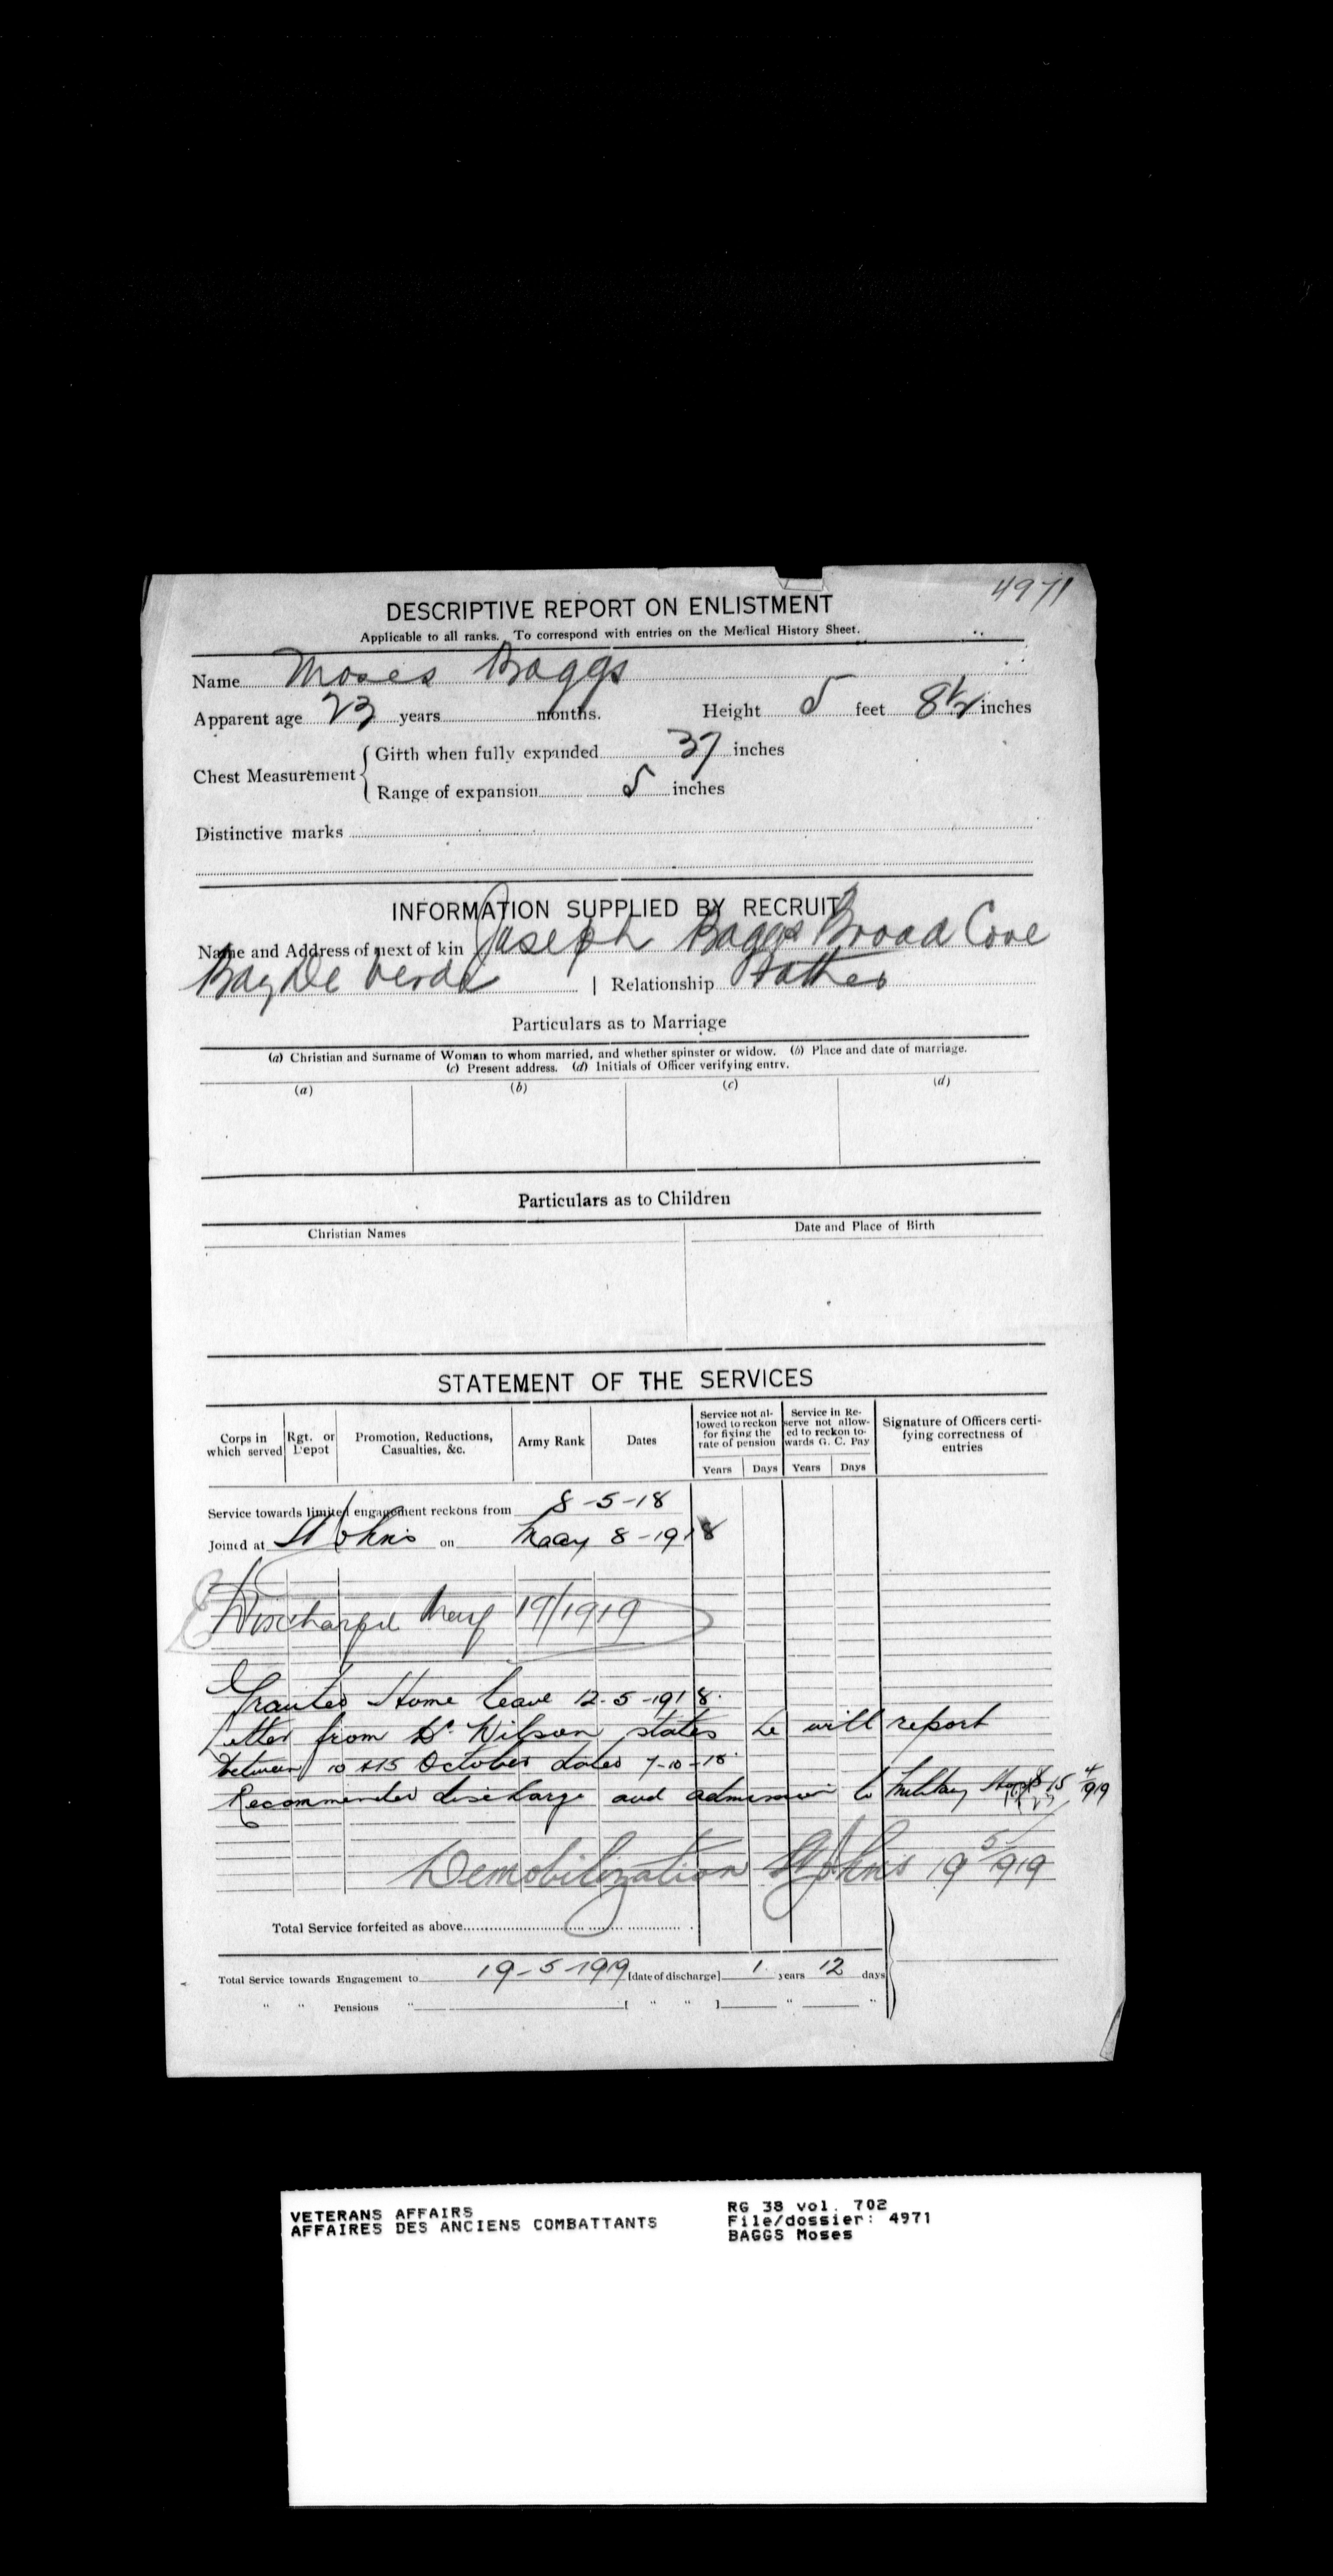 4971
DESCRIPTIVE REPORT ON ENLISTMENT
Applicable to all ranks. To correspond with entries on the Medical History Sheet.
Name Moses Baggs
Apparent age 23 years months. Height 5 feet 8½ inches
Chest Measurement { Girth when fully expanded 37 inches
Range of expansion 5 inches
Distinctive marks
INFORMATION SUPPLIED BY RECRUIT
Name and Address of next of kin Joseph Baggs Broad Cove
Bay De Verde | Relationship Father
Particulars as to Marriage
(a) Christian and Surname of Woman to whom married, and whether spinster or widow. (b) Place and date of marriage.
(c) Present address. (d) Initials of Officer verifying entry.
(a) (b) (c) (d)
Particulars as to Children
Christian Names Date and Place of Birth
STATEMENT OF THE SERVICES
Corps in which served Rgt. or Depot Promotion, Reductions, Casualties, &c. Army Rank Dates Service not allowed to reckon for fixing the rate of pension Service in Reserve not allowed to reckon towards G. C. Pay Signature of Officers certifying correctness of entries
Years Days Years Days
Service towards limited engagement reckons from 8-5-18
Joined at St Johns on May 8-1918
Discharged May 19/1919
Granted Home leave 12-5-1918.
Letter from Dr. Wilson states he will report
between 10 &15 October dated 7-10-18.
Recommended discharge and admission to Military 15 4/919
Demobilization St Johns 19 5/919
Total Service forfeited as above
Total Service towards Engagement to 19-5-1919 [date of discharge] 1 years 12 days
" " Pensions " [ " " ] " "
VETERANS AFFAIRS
AFFAIRES DES ANCIENS COMBATTANTS
RG 38 vol. 702
File/dossier: 4971
BAGGS Moses